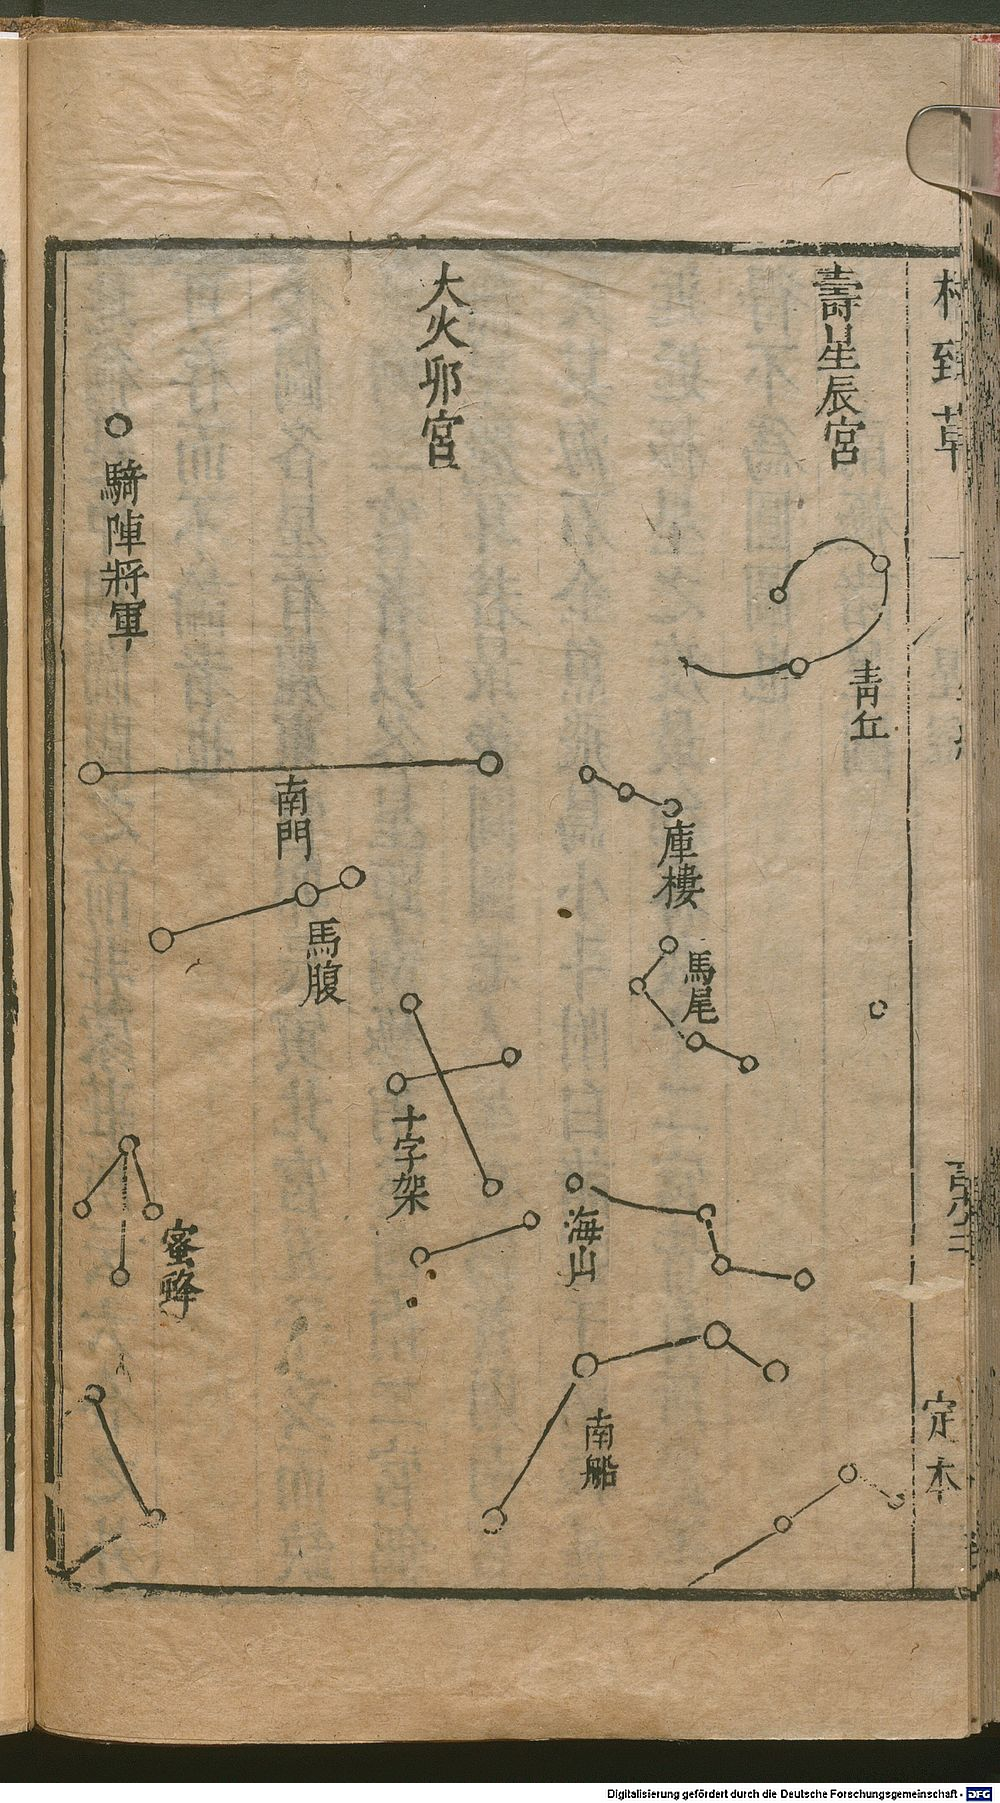 格致草
定本
壽星辰宮
青丘
庫樓
馬尾
海山
南船
大火卯宮
十字架
南門
馬腹
蜜蜂
騎陣將軍
Digitalisierung gefördert durch die Deutsche Forschungsgemeinschaft - DFG